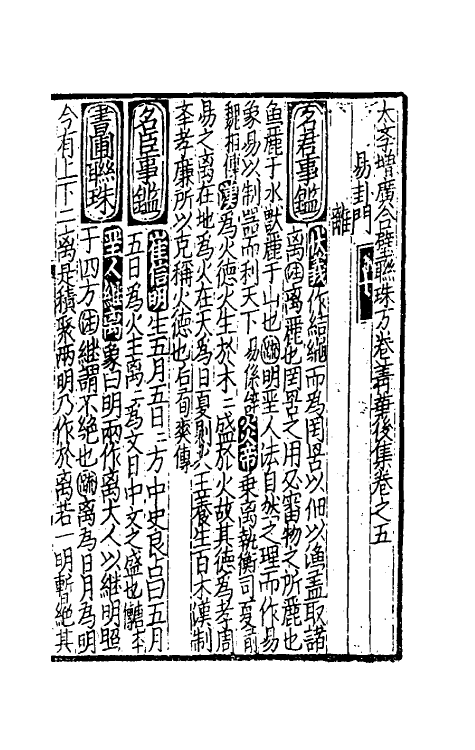 太孝增廣合璧聯珠万卷菁華後集卷之五
易卦門
離
名君事鑑
伏羲作結繩而為罔罟以佃以漁蓋取諸
離註離麗也罔罟之用必審物之所麗也
魚麗于水獸麗于山也疏明聖人法自然之理而作易
象易以制噐而利天下易係辞炎帝乗离執衡司夏前
魏相傳漢為火徳火生於木木盛於火故其徳為孝周
易之离在地為火在天為日夏則火王養生百木漢制
孝孝廉所以克稱火徳也后荀爽傳
名臣事鑑
崔信明生五月五日日方中史良占曰五月
五日為火主离离為文日中文之盛也本
書圃聯珠
聖人継离象曰明兩作离大人以継明照
于四方註継謂不絶也疏离為日月為明
今有上下二离是積聚兩明乃作於离若一明暫絶其